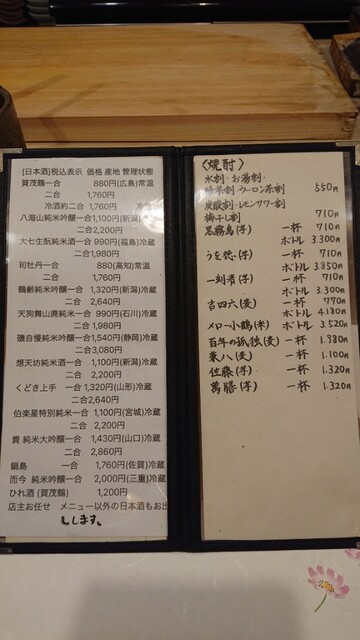 [日本酒]税込表示 価格 産地 管理状態
賀茂鶴一合 880円(広島)常温
二合 1,760円
冷酒約二合 1,760円 冷蔵
八海山純米吟醸一合1,100円(新潟)冷蔵
二合2,200円
大七生酛純米酒一合 990円(福島)冷蔵
二合1,980円
司牡丹一合 880(高知)常温
二合 1,760円
鶴齢純米吟醸一合 1,320円(新潟)冷蔵
二合 2,640円
天狗舞山廃純米一合 990円(石川)冷蔵
二合 1,980円
磯自慢純米吟醸一合1,540円(静岡)冷蔵
二合3,080円
想天坊純米酒一合 1,100円(新潟)冷蔵
二合 2,200円
くどき上手 一合1,320円(山形)冷蔵
二合2,640円
伯楽星特別純米一合 1,100円(宮城)冷蔵
二合 2,200円
貴 純米大吟醸一合 1,430円(山口)冷蔵
二合 2,860円
鍋島 一合 1,760円(佐賀)冷蔵
而今 純米吟醸一合 2,000円(三重)冷蔵
ひれ酒 (賀茂鶴) 1,200円
店主お任せ メニュー以外の日本酒もお出
しします。
〈焼酎〉
水割・お湯割・
緑茶割・ウーロン茶割 550円
炭酸割・レモンサワー割
梅干し割 710円
黒霧島(芋) 一杯 710円
ボトル 3.300円
一杯 710円
ボトル 3.850円
一刻者(芋) 一杯 710円
ボトル 3.300円
吉四六(麦) 一杯 770円
ボトル 4.180円
メロー小鶴(米) ボトル 3.520円
百年の孤独(麦) 一杯 1.380円
兼八(麦) 一杯 1.100円
佐藤(芋) 一杯 1.320円
萬膳(芋) 一杯 1.320円